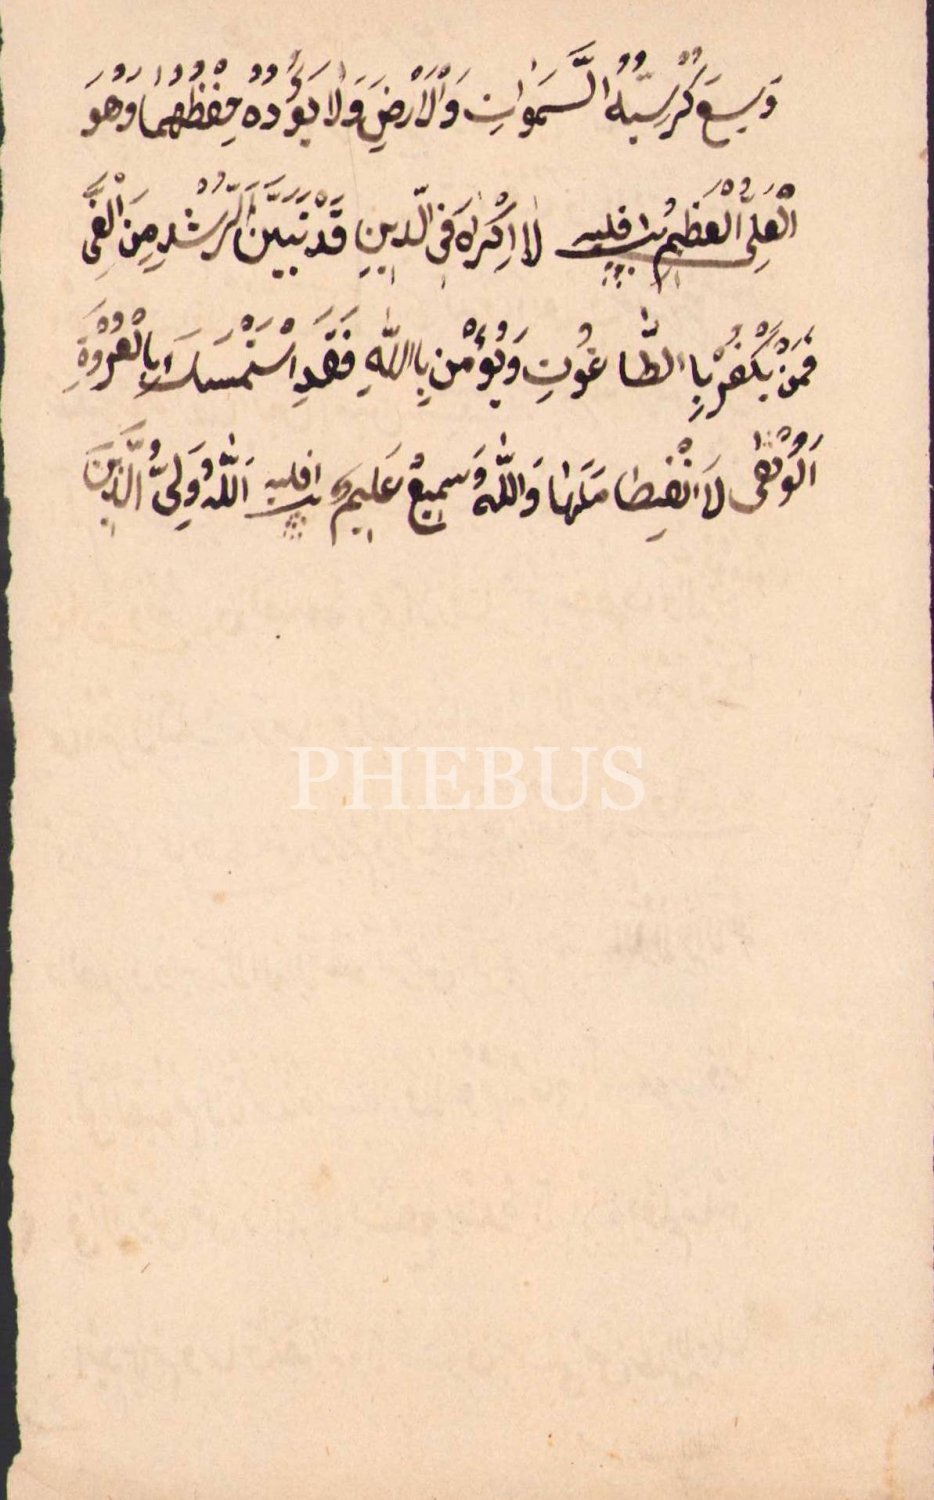 وَسِعَ كُرْسِيُّهُ السَّمٰوَاتِ وَالْاَرْضَ وَلَا يَؤُدُهُ حِفْظُهُمَا وَهُوَ
الْعَلِىُّ الْعَظِيمُ لَا اِكْرَاهَ فِى الدِّينِ قَدْ تَبَيَّنَ الرُّشْدُ مِنَ الْغَىِّ
فَمَنْ يَكْفُرْ بِا الطَّاغُوتِ وَيُؤْمِنْ بِاللّٰهِ فَقَدِ اسْتَمْسَكَ بِالْعُرْوَةِ
الْوُثْقٰى لَا انْفِصَامَ لَهَا وَاللّٰهُ سَمِيعٌ عَلِيمٌ اَللّٰهُ وَلِىُّ الَّذِينَ
PHEBUS